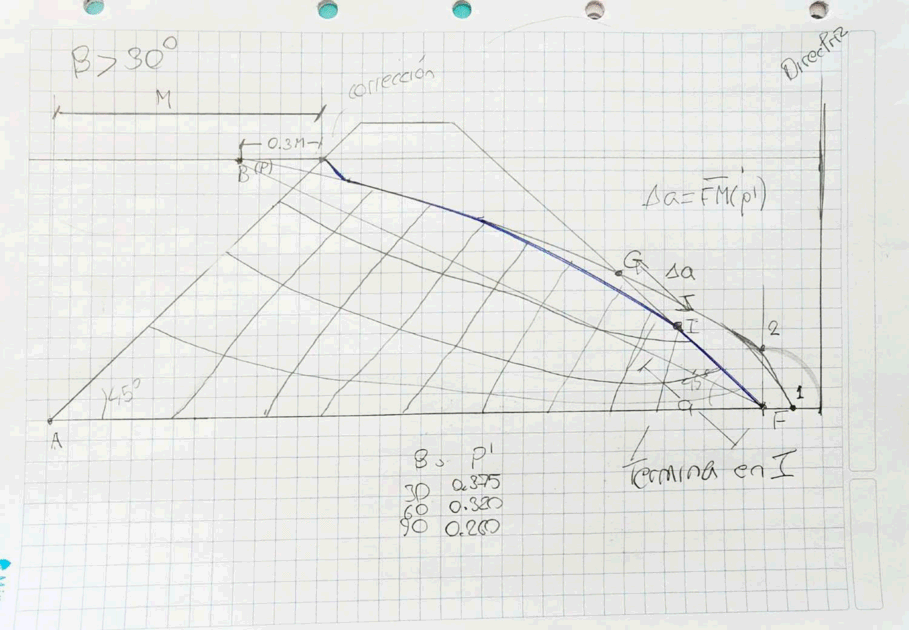 B > 30°
M
corrección
Directriz
0.3M
B (P)
Δa = FM(p')
G
Δa
I
2
45°
45°
a
F
1
A
Termina en I
B: P'
30 0.375
60 0.320
90 0.260